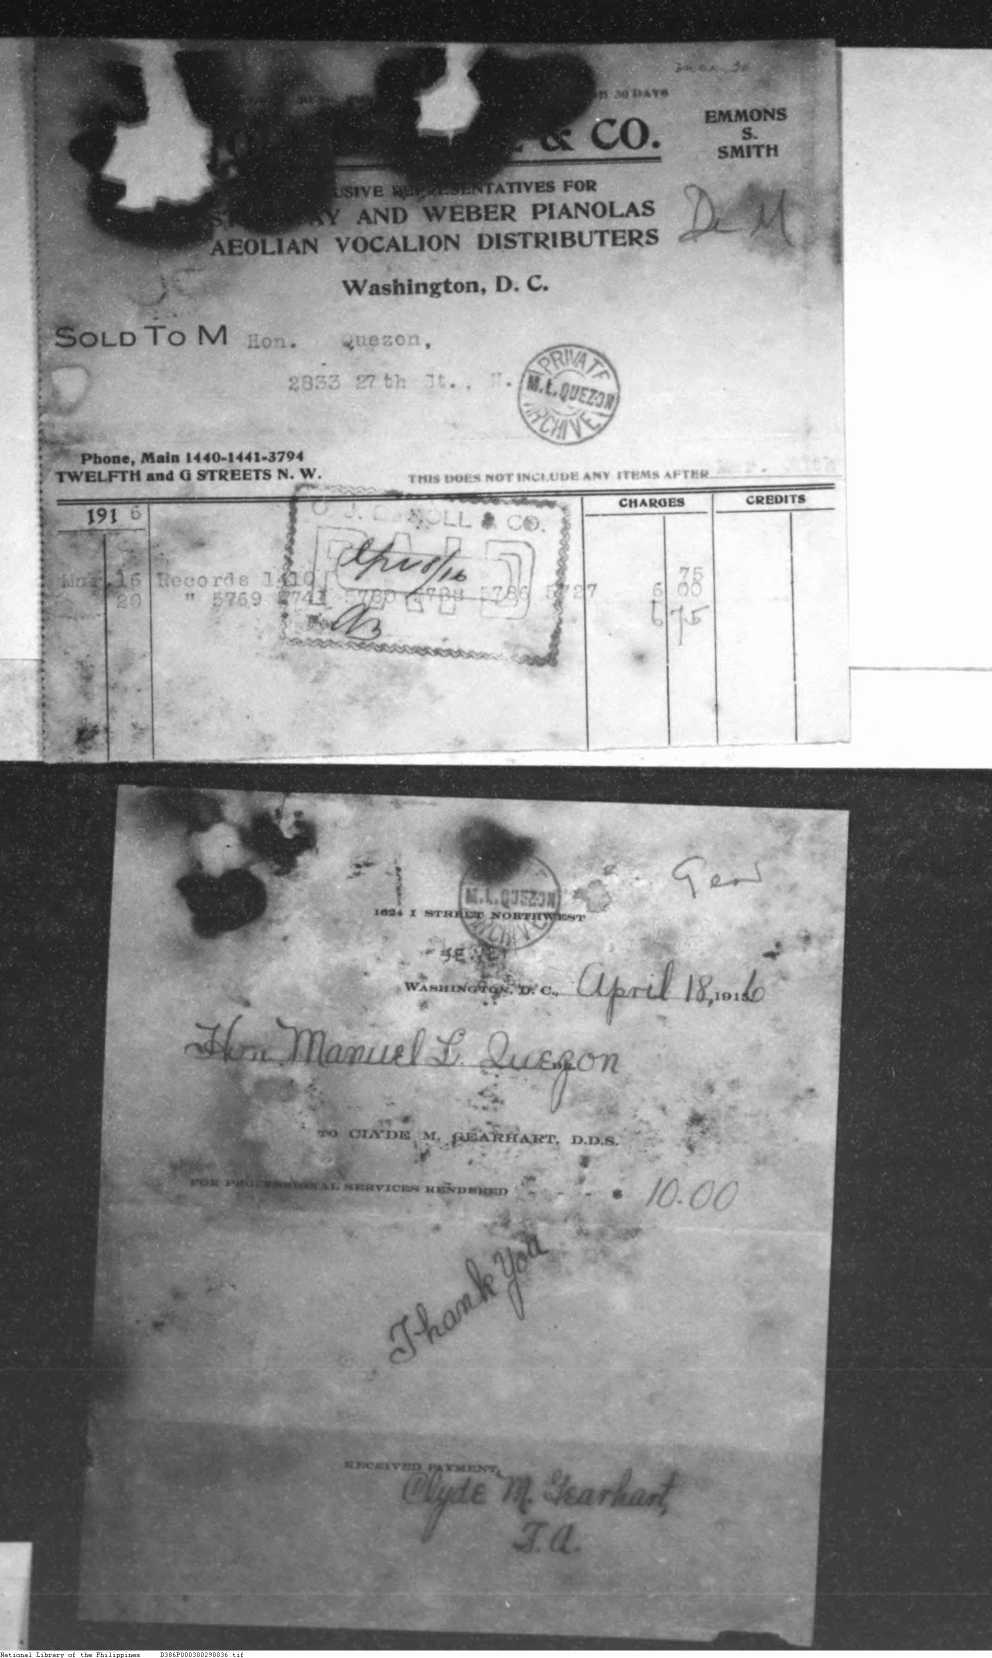 ON 30 DAYS
& CO.
EMMONS
S.
SMITH
REPRESENTATIVES FOR
AND WEBER PIANOLAS
AEOLIAN VOCALION DISTRIBUTERS
De M
Washington, D. C.
SOLD TO M Hon. Quezon,
2833 27th St., N.
PRIVATE
M.L.QUEZON
ARCHIVE
Phone, Main 1440-1441-3794
TWELFTH and G STREETS N. W.
THIS DOES NOT INCLUDE ANY ITEMS AFTER
CHARGES CREDITS
1916
& CO.
PAID
Mar. 16 Records 1410 75
20 " 5769 5727 6 00
6 75
Gear
M.L.QUEZON
ARCHIVE
1624 I STREET NORTHWEST
WASHINGTON, D. C., April 18, 1916
Hon Manuel L. Quezon
TO CLYDE M. GEARHART, D.D.S.
FOR PROFESSIONAL SERVICES RENDERED $ 10.00
Thank You
RECEIVED PAYMENT,
Clyde M. Gearhart,
F.A.
National Library of the Philippines D386P000300290036.tif